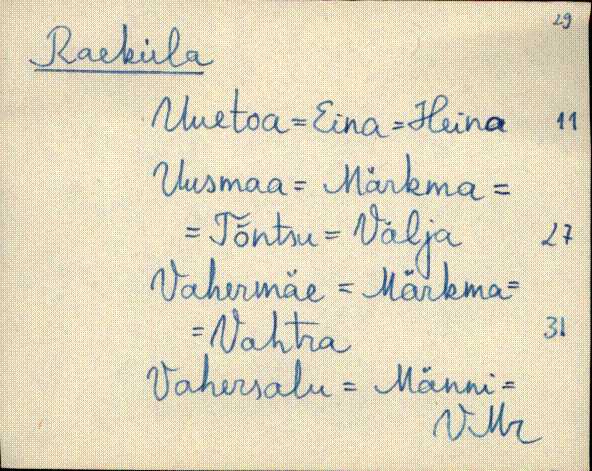 29
Raeküla
Uuetoa = Eina = Heina 11
Uusmaa = Märkma =
= Tõntsu = Välja 27
Vahermäe = Märkma =
= Vahtra 31
Vahersalu = Männi =